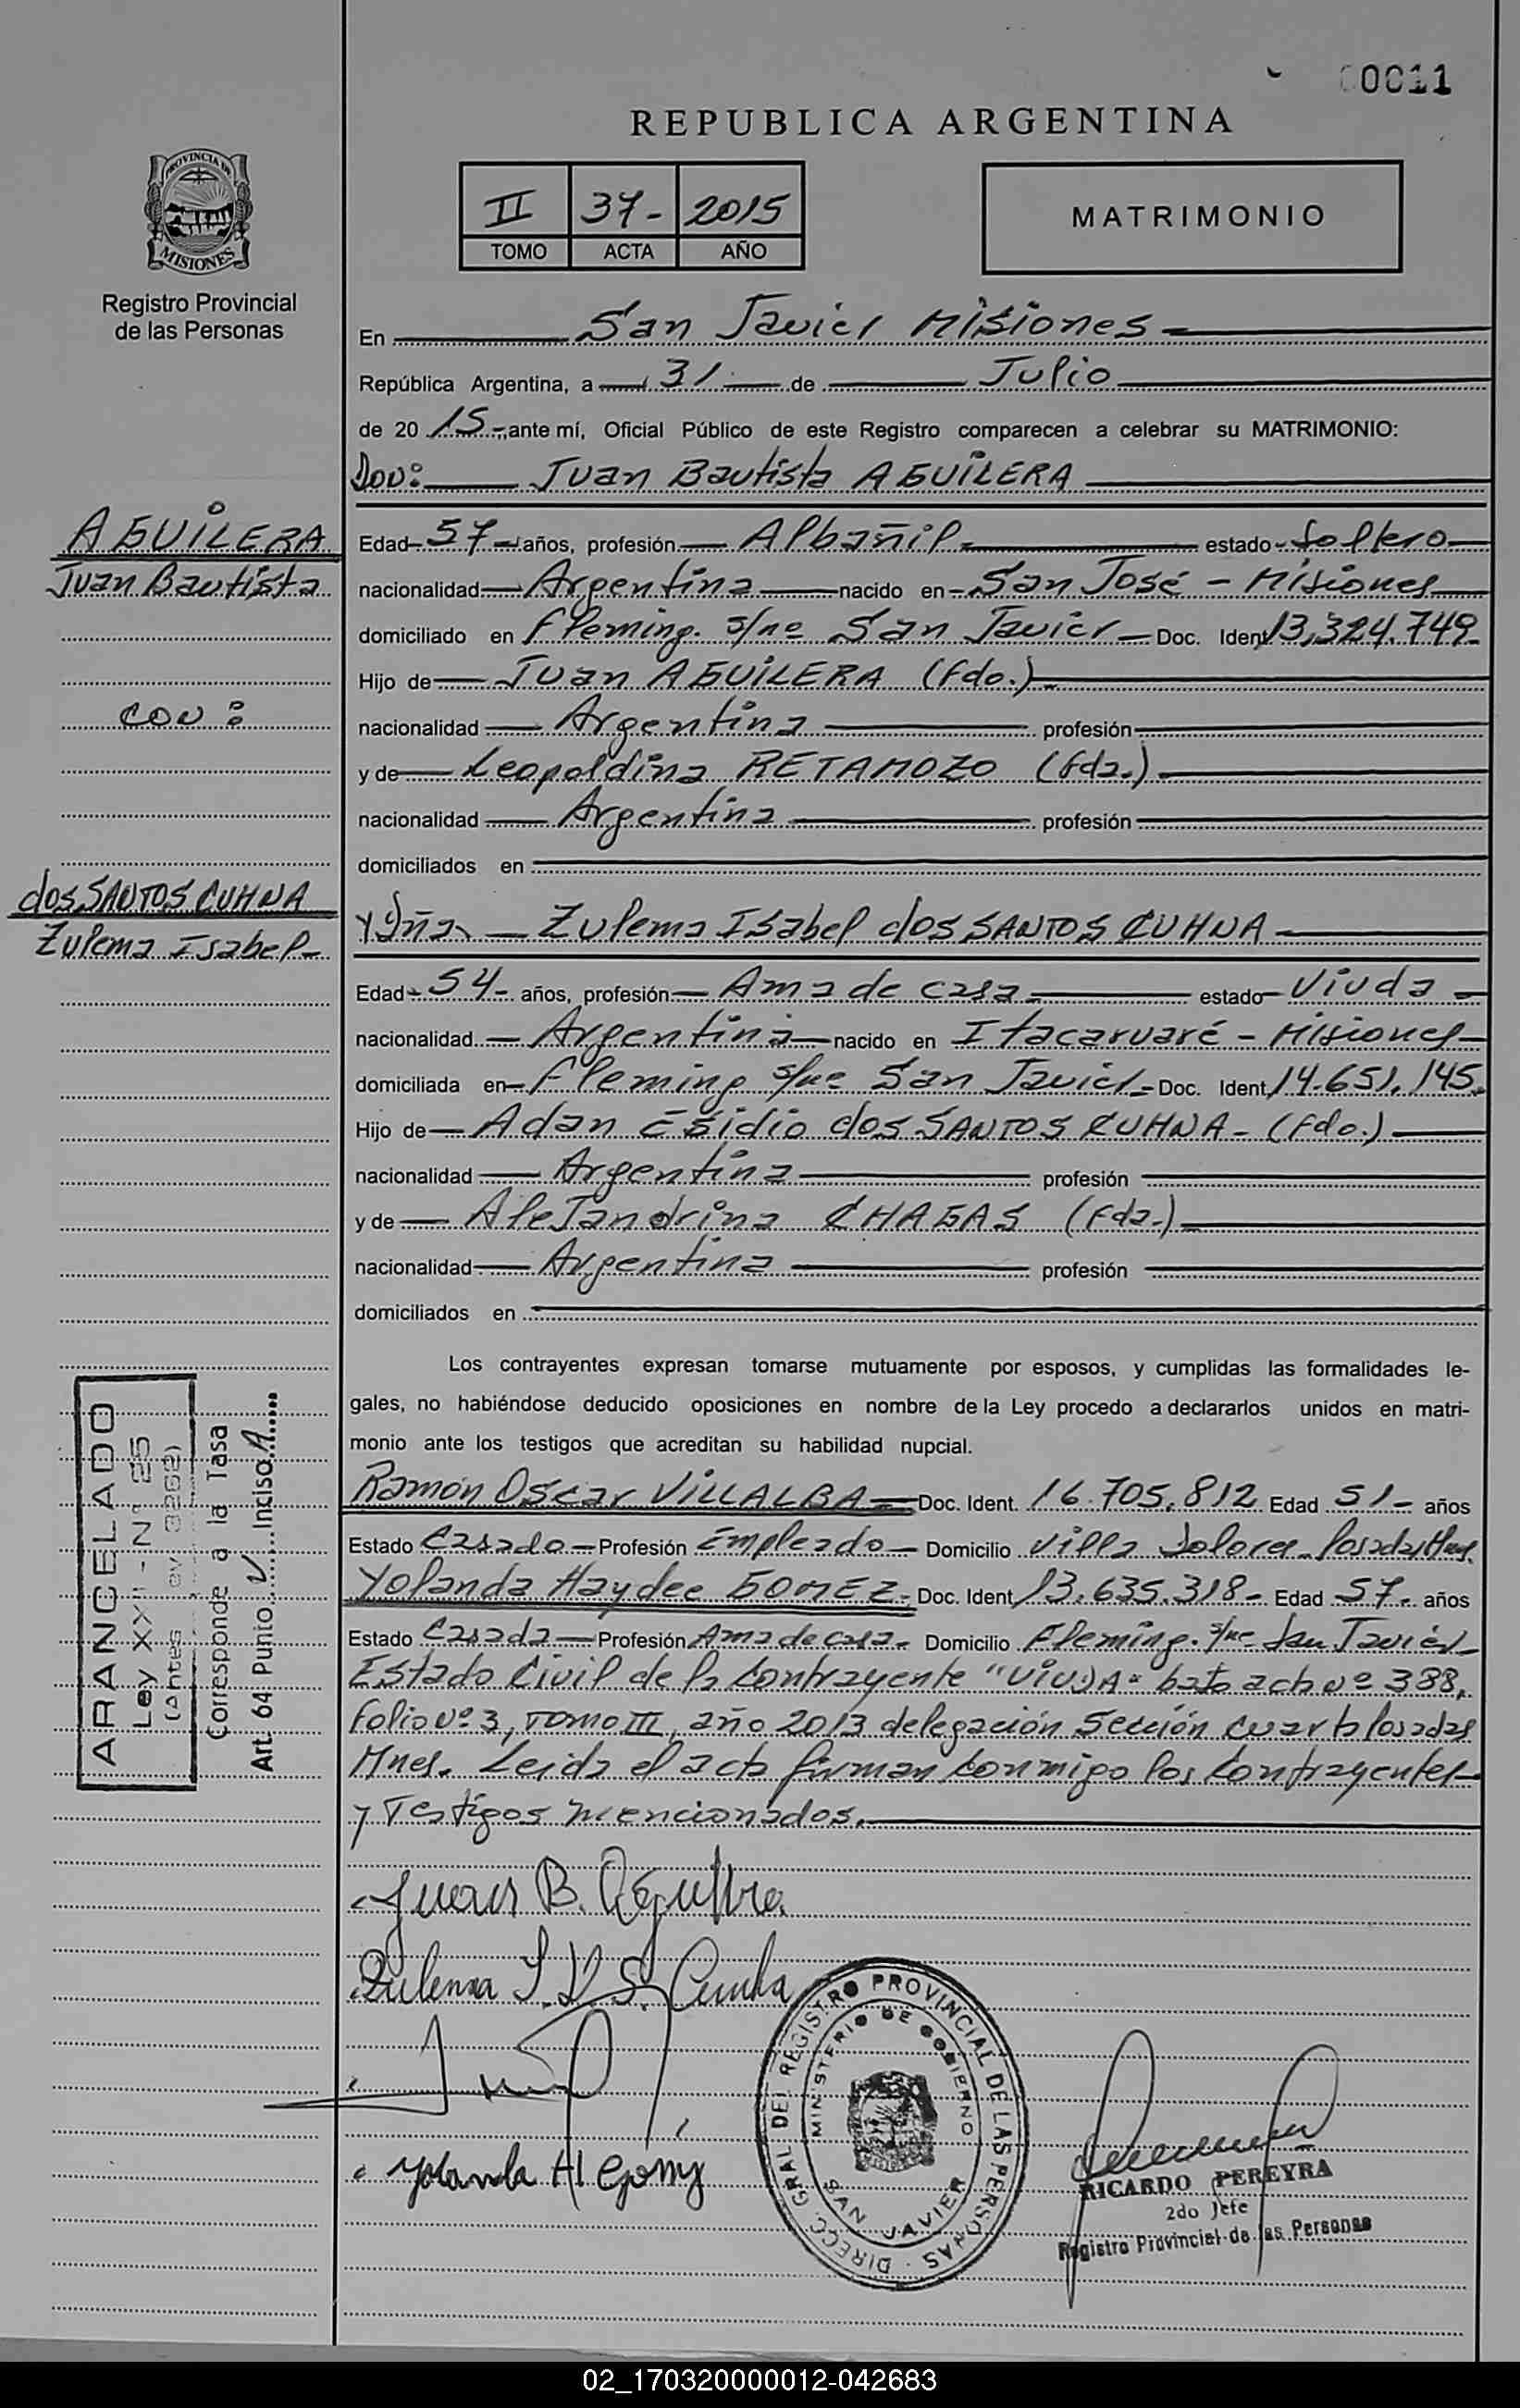 00011
REPUBLICA ARGENTINA
PROVINCIA DE
MISIONES
Registro Provincial
de las Personas
II 37- 2015
TOMO ACTA AÑO
MATRIMONIO
En San Javier Misiones
República Argentina, a 31 de Julio
de 20 15 ante mí, Oficial Público de este Registro comparecen a celebrar su MATRIMONIO:
Don: Juan Bautista AGUILERA
AGUILERA
Juan Bautista
con:
dos SANTOS CUHNA
Zulema Isabel
Edad 57 años, profesión Albañil estado Soltero
nacionalidad Argentina nacido en San José - Misiones
domiciliado en Fleming. s/nº San Javier Doc. Ident 13,324.749
Hijo de Juan AGUILERA (fdo.)
nacionalidad Argentina profesión
y de Leopoldina RETAMOZO (fda.)
nacionalidad Argentina profesión
domiciliados en
y Dña. Zulema Isabel dos SANTOS CUHNA
Edad 54 años, profesión Ama de casa estado Viuda
nacionalidad Argentina nacido en Itacaruaré - Misiones
domiciliada en Fleming s/nº San Javier Doc. Ident 14.651.145
Hijo de Adan Egidio dos SANTOS CUHNA - (fdo.)
nacionalidad Argentina profesión
y de Alejandrina CHAGAS (fda.)
nacionalidad Argentina profesión
domiciliados en
Los contrayentes expresan tomarse mutuamente por esposos, y cumplidas las formalidades le-
gales, no habiéndose deducido oposiciones en nombre de la Ley procedo a declararlos unidos en matri-
monio ante los testigos que acreditan su habilidad nupcial.
Ramón Oscar VILLALBA Doc. Ident. 16.705.812 Edad 51 años
Estado Casado Profesión Empleado Domicilio Villa Dolores Posadas Mnes.
Yolanda Haydee GOMEZ Doc. Ident 13.635.318 Edad 57 años
Estado Casada Profesión Ama de casa Domicilio Fleming. s/nº San Javier
Estado Civil de la contrayente "VIUDA" bajo acta nº 388,
folio Nº 3, TOMO III, año 2013 delegación Sección cuarta Posadas
Mnes. Leida el acta firman conmigo los contrayentes
y Testigos mencionados.
ARANCELADO
Ley XXII - Nº 25
(Antes Ley 3262)
Corresponde a la Tasa
Art. 64 Punto V Inciso A
Juan B. Aguilera
Zulema I. D. S. Cunha
Yolanda H Gomez
DIRECC. GRAL DEL REGISTRO PROVINCIAL DE LAS PERSONAS
MINISTERIO DE GOBIERNO
SAN JAVIER
RICARDO PEREYRA
2do Jefe
Registro Provincial de las Personas
02_170320000012-042683